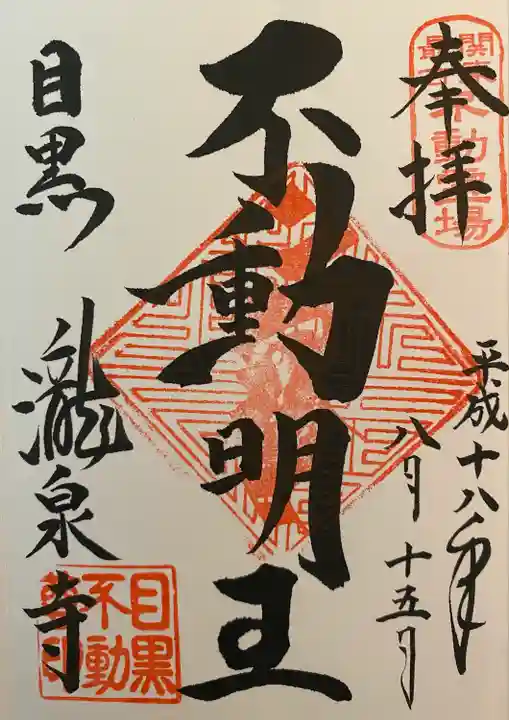 奉拝
不動霊場
平成十八年
八月十五日
不動明王
目黒
瀧泉寺
目黒
不動